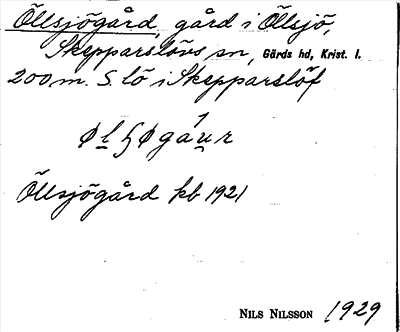 Öllsjögård, gård i Öllsjö,
Skepparslövs sn, Gärds hd, Krist. l.
200 m. S. lö i Skepparslöf
Öllsjögård kb 1921
NILS NILSSON 1929